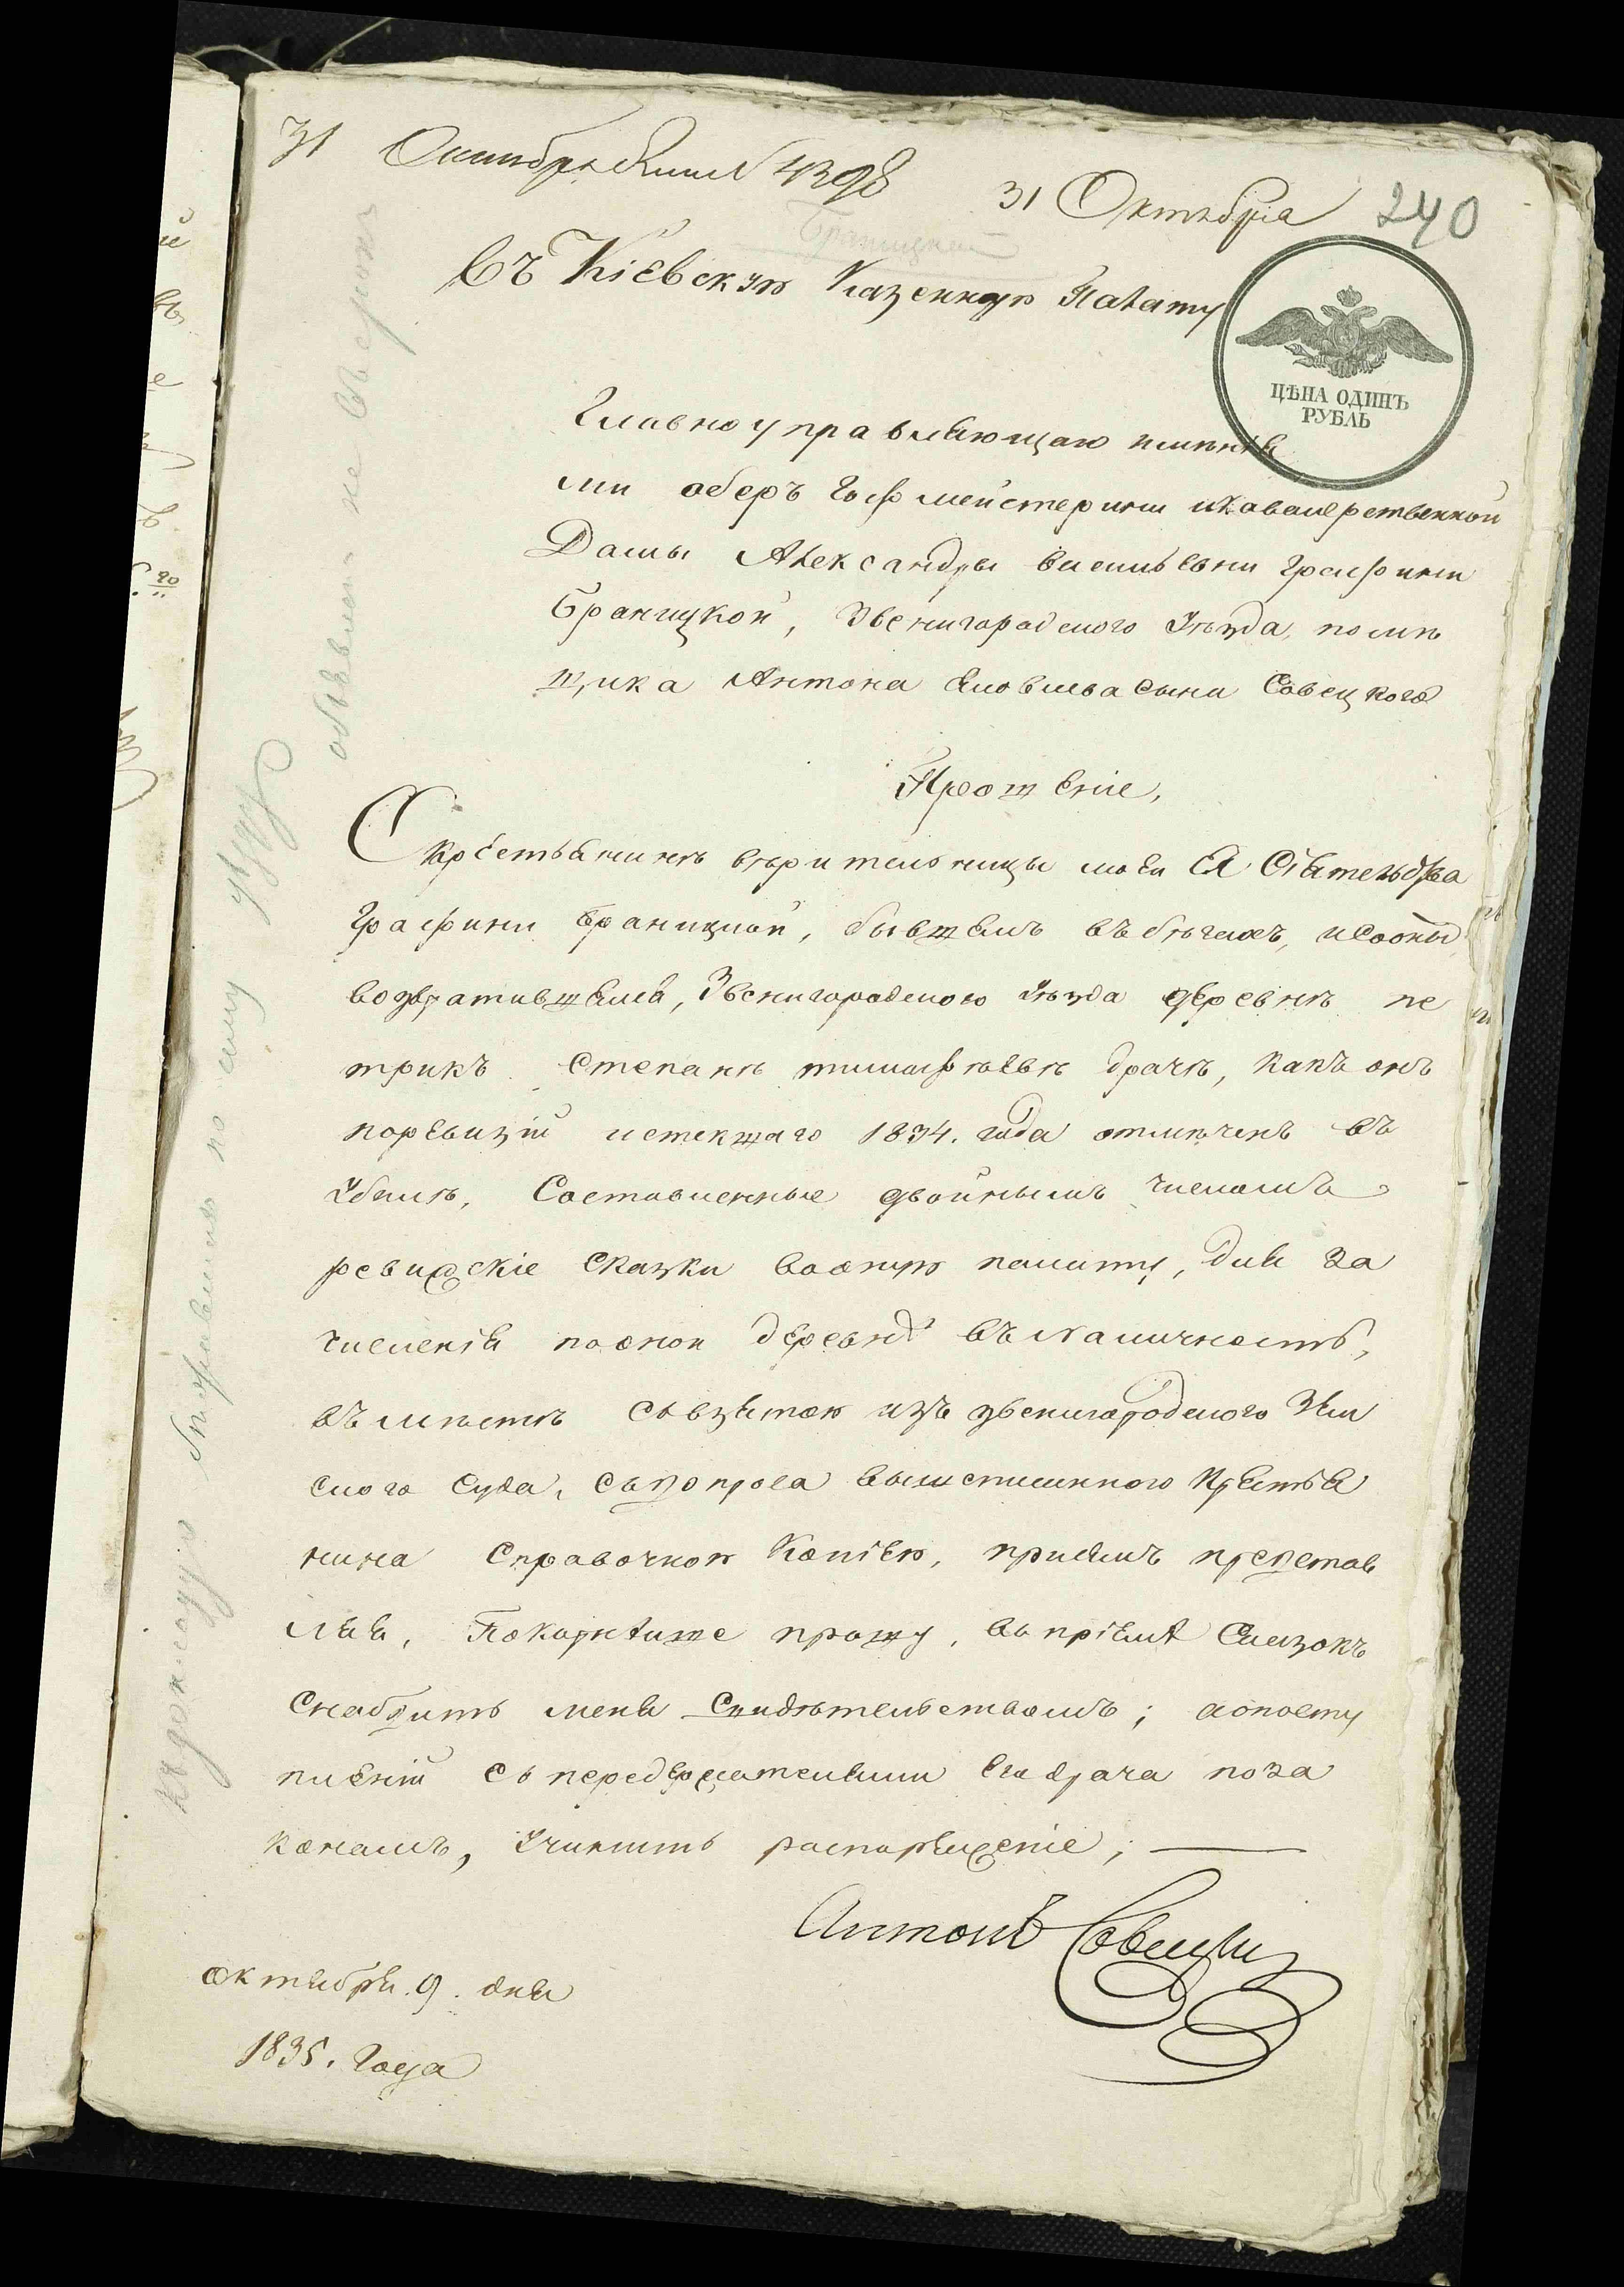 31 Октября 4398
31 Октября 240
Браницкой
Въ Кіевскую Казенную Палату
ЦѢНА ОДИНЪ
РУБЛЬ
Главноуправляющаго имѣнія
ми оберъ Гофмейстерини и кавалерственной
Дамы Александры васильевни Графини
Браницкой, Звенигородского Уѣзда, помѣ
щика Антона Сына Савецкого
Прошеніе,
О крестьянинѣ вѣрительницы моея Ея Сіятельства
Графини Браницкой, бывшемъ въ бѣгахъ, и
возвратившемся, Звенигородского Уѣзда деревнѣ пе
трикъ Степанѣ тимофѣевѣ драчѣ, какъ онъ
поревизіи истекшаго 1834. года отмѣченъ въ
Убыли, Составленные двойнымъ числомъ
ревизскіе Сказки вооную палату, для за
численія пооной деревнѣ въ Наличность,
въмѣстѣ совзятою изъ звенигородского Зем
ского Суда, Сдопроса вышеписанного Крестья
нина Справочною Копіею, приемъ представ
ляя, Покорнѣише прошу, въ пріемѣ Сказокъ
Снабдить меня Свидѣтельствомъ; аопосту
пленіи съ передержателями его драча поза
конамъ, Учинить распоряженіе;
Антонъ Савецкій
октября. 9. дня
1835. Года
объявлен не въ срокъ
къ докладу съ справкою по сему